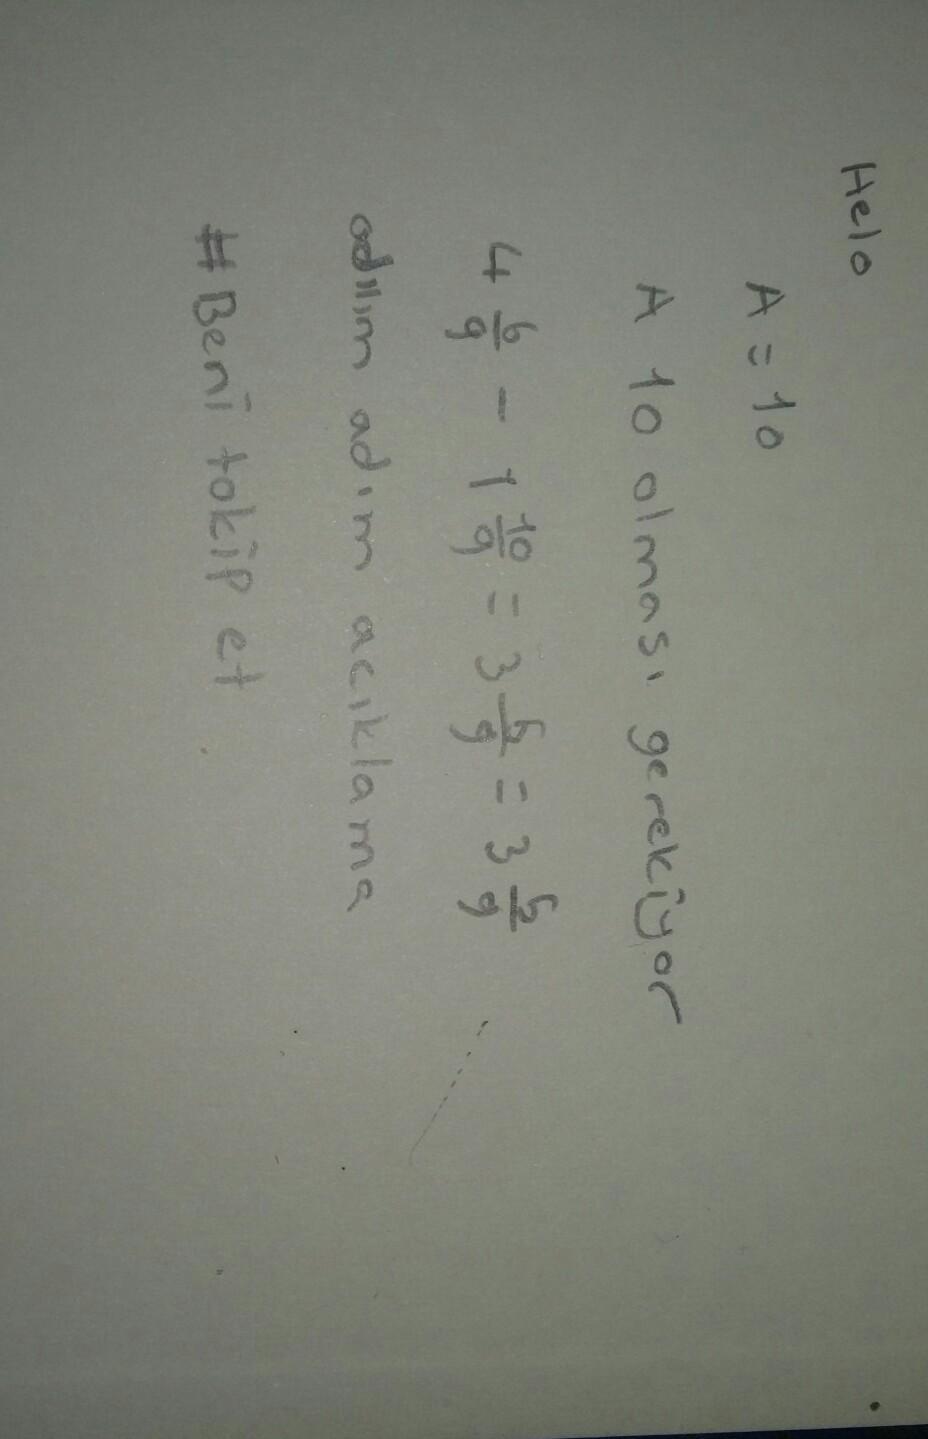 Helo
A = 10
A 10 olması gerekiyor
4 6/9 - 1 10/9 = 3 5/9 = 3 5/9
adıım adım acıklama
#Beni tokip et